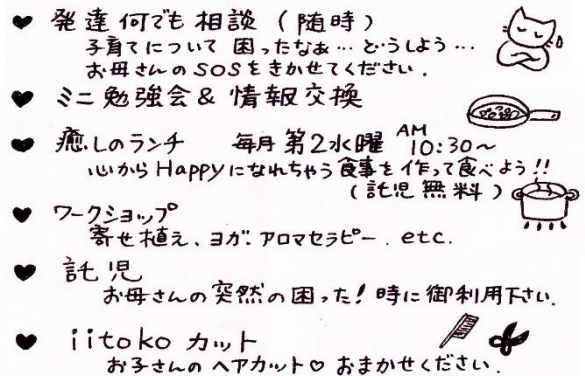 ♥ 発達何でも相談(随時)
子育てについて 困ったなぁ…どうしよう…
お母さんのSOSをきかせてください.
♥ ミニ勉強会&情報交換
♥ 癒しのランチ 毎月 第2水曜 AM 10:30~
心からHappyになれちゃう食事を作って食べよう!!
(託児無料)
♥ ワークショップ
寄せ植え、ヨガ、アロマセラピー. etc.
♥ 託児
お母さんの突然の困った!時に御利用下さい.
♥ iitoko カット
お子さんのヘアカット♡おまかせください.